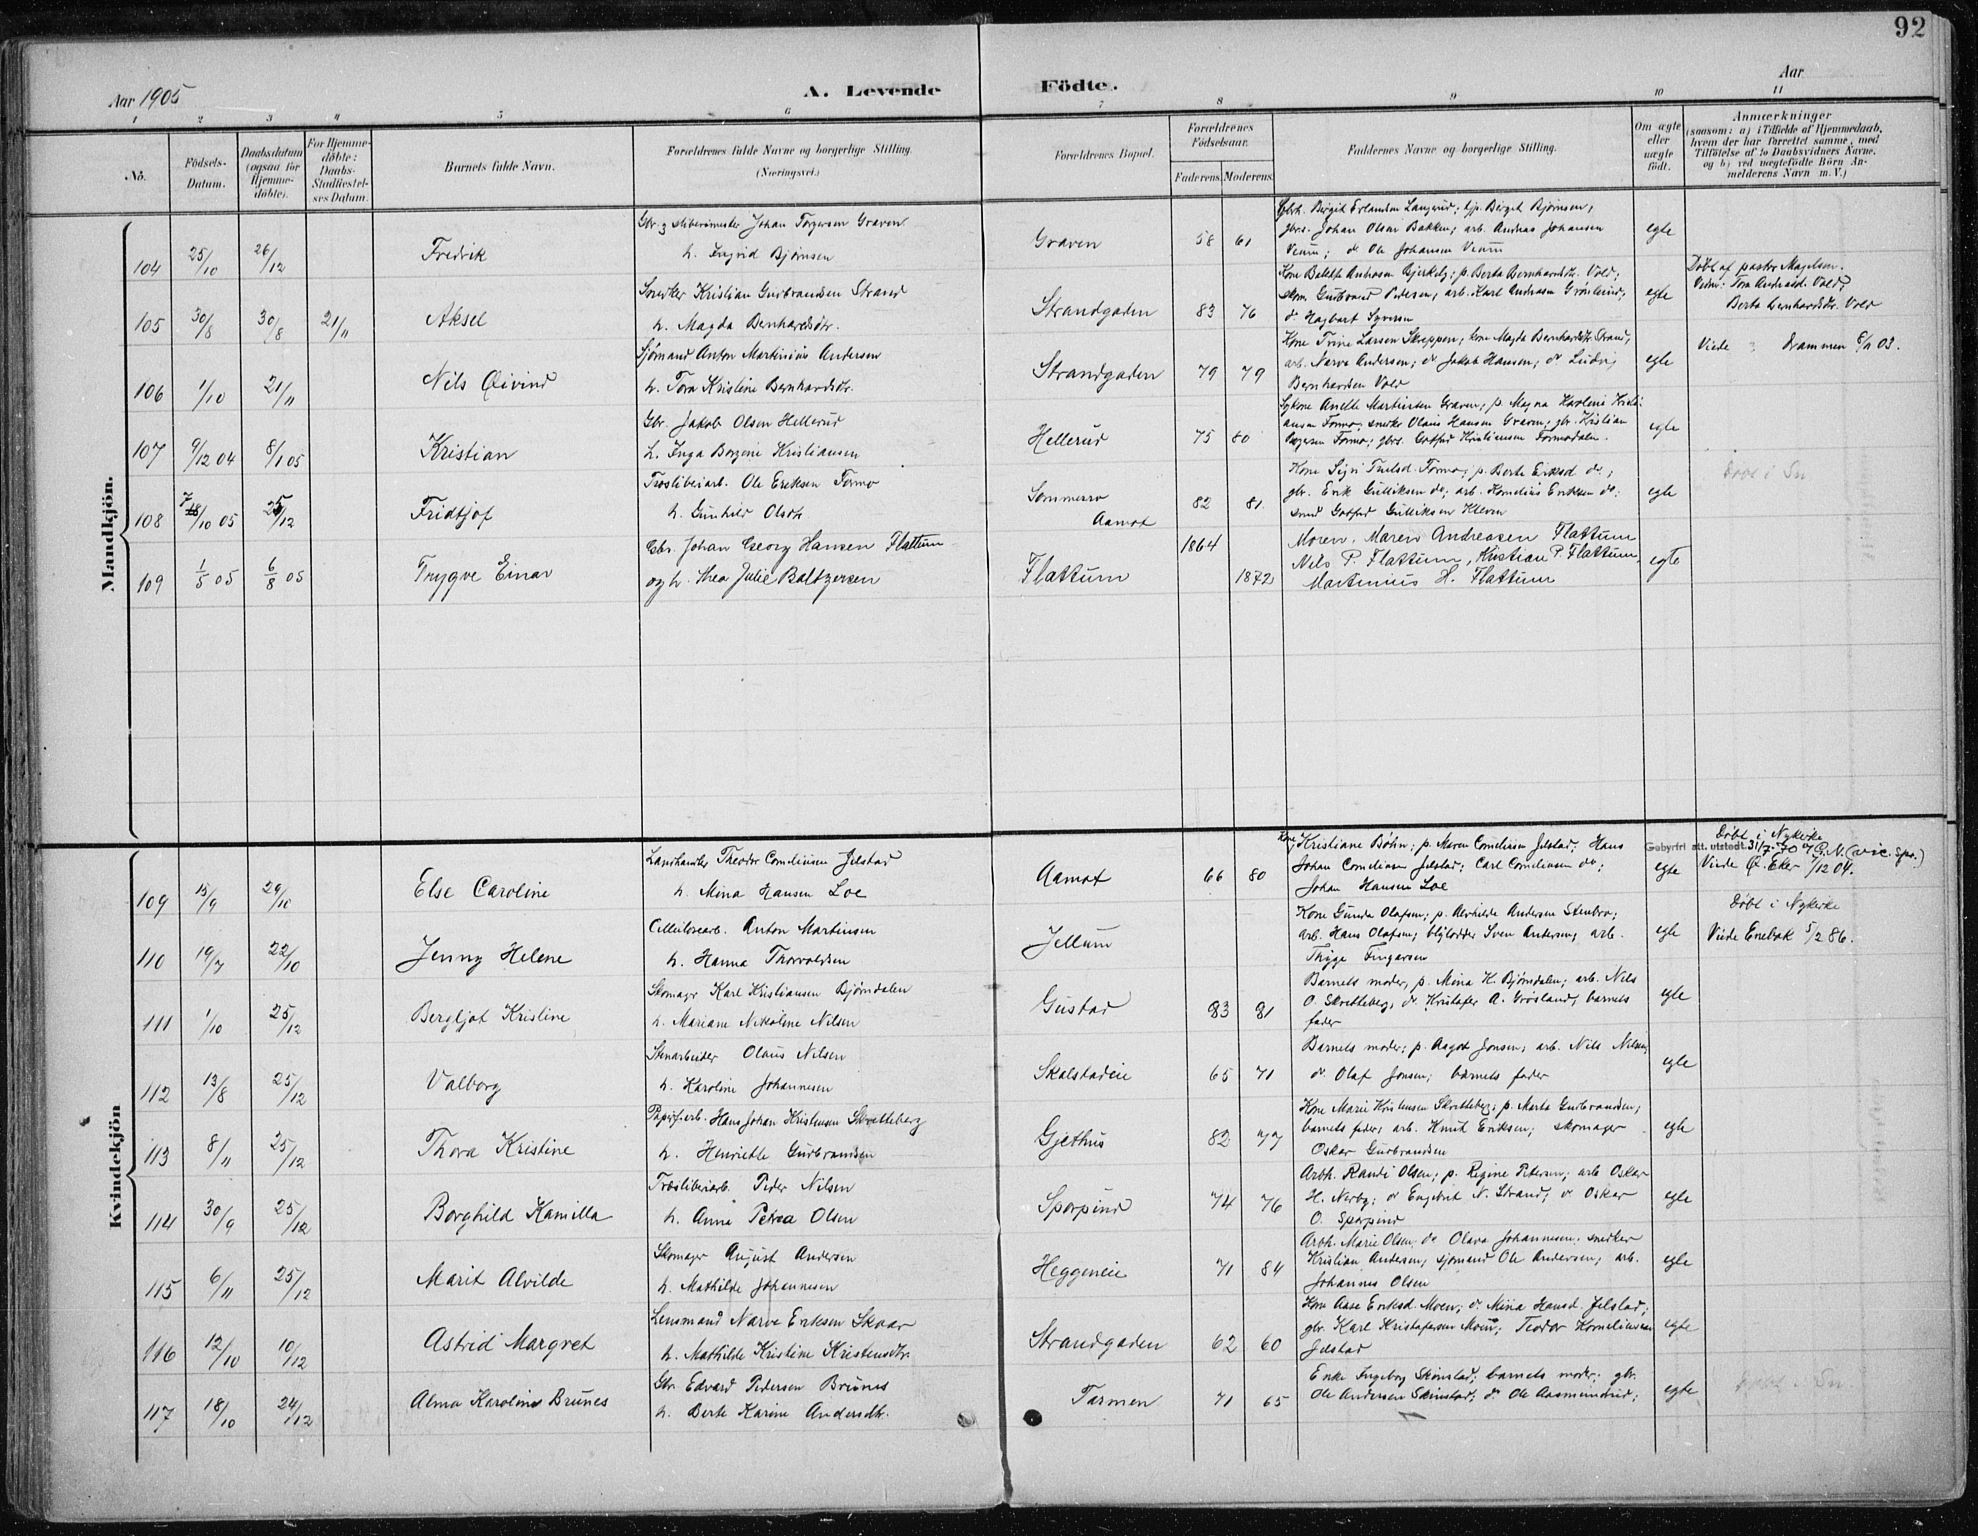 92
Aar 1905
A. Levende
Födte.
Aar
1 2 3 4 5 6 7 8 9 10 11
No.
Födsels-Datum.
Daabsdatum (ogsaa for Hjemme-döbte).
For Hjemme-döbte: Daabs-Stadfæstel-ses Datum.
Barnets fulde Navn.
Forældrenes fulde Navne og borgerlige Stilling. (Næringsvei.)
Forældrenes Bopæl.
Forældrenes Födselsaar.
Faderens. Moderens.
Faddernes Navne og borgerlige Stilling.
Om ægte eller uægte födt.
Anmærkninger
(saasom: a) i Tilfælde af Hjemmedaab,
hvem der har forrettet samme, med
Tilföielse af to Daabsvidners Navne,
og b) ved uægtefödte Börn An-
melderens Navn m. V.)
Mandkjön.
104 25/10 26/12 Fredrik
Johan Torgersen Graven
h. Ingrid Bjørnsen
Graven 58 61
Bergit Erlandsen Langerud; Berget Bjørnsen;
gbrs. Johan Olsen Bakken; arb. Andreas Johansen
Veum; do Ole Johansen Veum
egte
105 30/8 30/8 21/11 Aksel
Snedker Kristian Gudbrandsen Strand
h. Magda Bernhardsdtr.
Strandgaden 83 76
Kone Andrea Bjerkelg; p. Berta Bernhardsdtr. Vold;
skom. Gudbrand Pedersen; arb. Karl Andresen Grönlund;
do Hagbart Syversen
egte
Døbt af pastor Magelsen.
Vidn: Tora Vold,
Berta Bernhardsdtr. Vold
106 1/10 21/11 Nils Øivind
Sjømand Anton Martinius Andersen
h. Tora Kristine Bernhardsdtr.
Strandgaden 79 79
Kone Trine Larsen Skreppen; kone Magda Bernhardsdtr Strand;
arb. Narve Andersen; do Jakob Hansen; do Ludvig
Bernhardsen Vold
egte
Viede Drammen 6/11 03.
107 9/12 04 8/1 05 Kristian
Gbr. Jakob Olsen Hellerud
h. Inga Borgine Kristiansen
Hellerud 75 80
Sykone Anette Martinsen Graven; p. Magna Karoline Kristi-
ansen Formo; smeks Olaus Hansen Graven; gbr. Kristian
Formo; gbrs. Gotfred Kristiansen Formodalen.
egte
108 7/10 05 25/12 Fridtjof
Træsliberiarb. Ole Eriksen Formo
h. Gunhild Olsdtr
Sommerro
Aamot 82 81
Kone Sigri Truelsd. Formo; p. Berte Eriksd do;
gbr. Erik Gulliksen do; arb. Kornelius Eriksen do;
svend Gotfred Gulliksen Kleven
egte
Døbt i Sn
109 1/5 05 6/8 05 Trygve Einar
Gbr. Johan Georg Hansen Flattum
og h. Thea Julie Baltzersen
Flattum 1864 1872
Moren. Maren Andreasen Flattum
Nils P. Flattum, Kristian P. Flattum,
Martinius H. Flattum
egte
Kvindekjön
109 15/9 29/10 Else Caroline
Landhandler Theodor Corneliusen Jelstad
h. Mina Hansen Loe
Aamot 66 80
Kone Kristiane Bøhn; p. Maren Corneliusen Jelstad. Hans
Johan Corneliusen Jelstad; Carl Corneliusen do;
Johan Hansen Loe
Gebyrfri att. utstedt 31/7-70 G.N. (vic. spr.)
egte
Døbt i Nykirke
Viede Ø. Eker /12 04.
110 19/7 22/10 Jenny Helene
Cellulosearb. Anton Martinsen
h. Hanna Thorvaldsen
Jellum
Kone Gunda Olafsen; p. Alvhilde Andersen Stenbro;
arb. Hans Olafsen; Sven Andersen; arb.
Thyge Fingarsen
egte
Døbt i Nykirke
Viede Enebak 5/2 86.
111 1/10 25/12 Bergljot Kristine
Skomager Karl Kristiansen Bjørndalen
h. Mariane Nikoline Nilsen
Gustad 83 81
Barnets moder; p. Mina H. Bjørndalen; arb. Nils
O. Skretteberg; do. Kristofer A. Grøsland; barnets
fader
egte
112 13/8 25/12 Valborg
Stenarbeider Olaus Nilsen
h. Karoline Johannesen
Skalstadeie 65 71
Barnets moder; p. Aagot Jonsen; arb. Nils Nilsen;
do. Olaf Jonsen; barnets fader
egte
113 8/11 25/12 Thora Kristine
Papirfarb. Hans Johan Kristensen Skretteberg
h. Henriette Gudbrandsen
Gjethus 82 77
Kone Marie Kristensen Skretteberg; p. Marta Gudbrandsen;
barnets fader; arb. Knut Eriksen; skomager
Oskar Gudbrandsen
egte
114 30/9 25/12 Borghild Kamilla
Træsliberiarb. Peder Nilsen
h. Anna Petrea Olsen
Sporpind 74 76
Arbh. Randi Olsen; p. Regine Petersen; arb Oskar
H. Nerby; do Engebret N. Strand; do Oskar
O. Sporpind
egte
115 6/11 25/12 Marit Alvilde
Skomager August Andersen
h. Mathilde Johannesen
Heggeneie 71 84
Arbh. Marie Olsen; do Olava Johannesen; snedker
Kristian Andersen; sjømand Ole Andersen; arb.
Johannes Olsen
egte
116 12/10 10/12 Astrid Margret
Lensmand Narve Eriksen Skaar
h. Mathilde Kristine Kristensdtr.
Strandgaden 62 60
Kone Aase Eriksd. Moen; do. Mina Hansd. Jelstad;
gbr. Karl Kristofersen Moen; Teodor Korneliussen
Jelstad
egte
117 18/10 24/12 Alma Karoline Brunes
Gbr. Edvard Pedersen Brunes
h. Berte Karine Andersdtr.
Tarmen 71 65
Enke Ingeborg Skinstad; barnets moder; gbr.
Ole Andersen Skinstad; do Ole Aasmundrud;
egte
Døbt i Sn